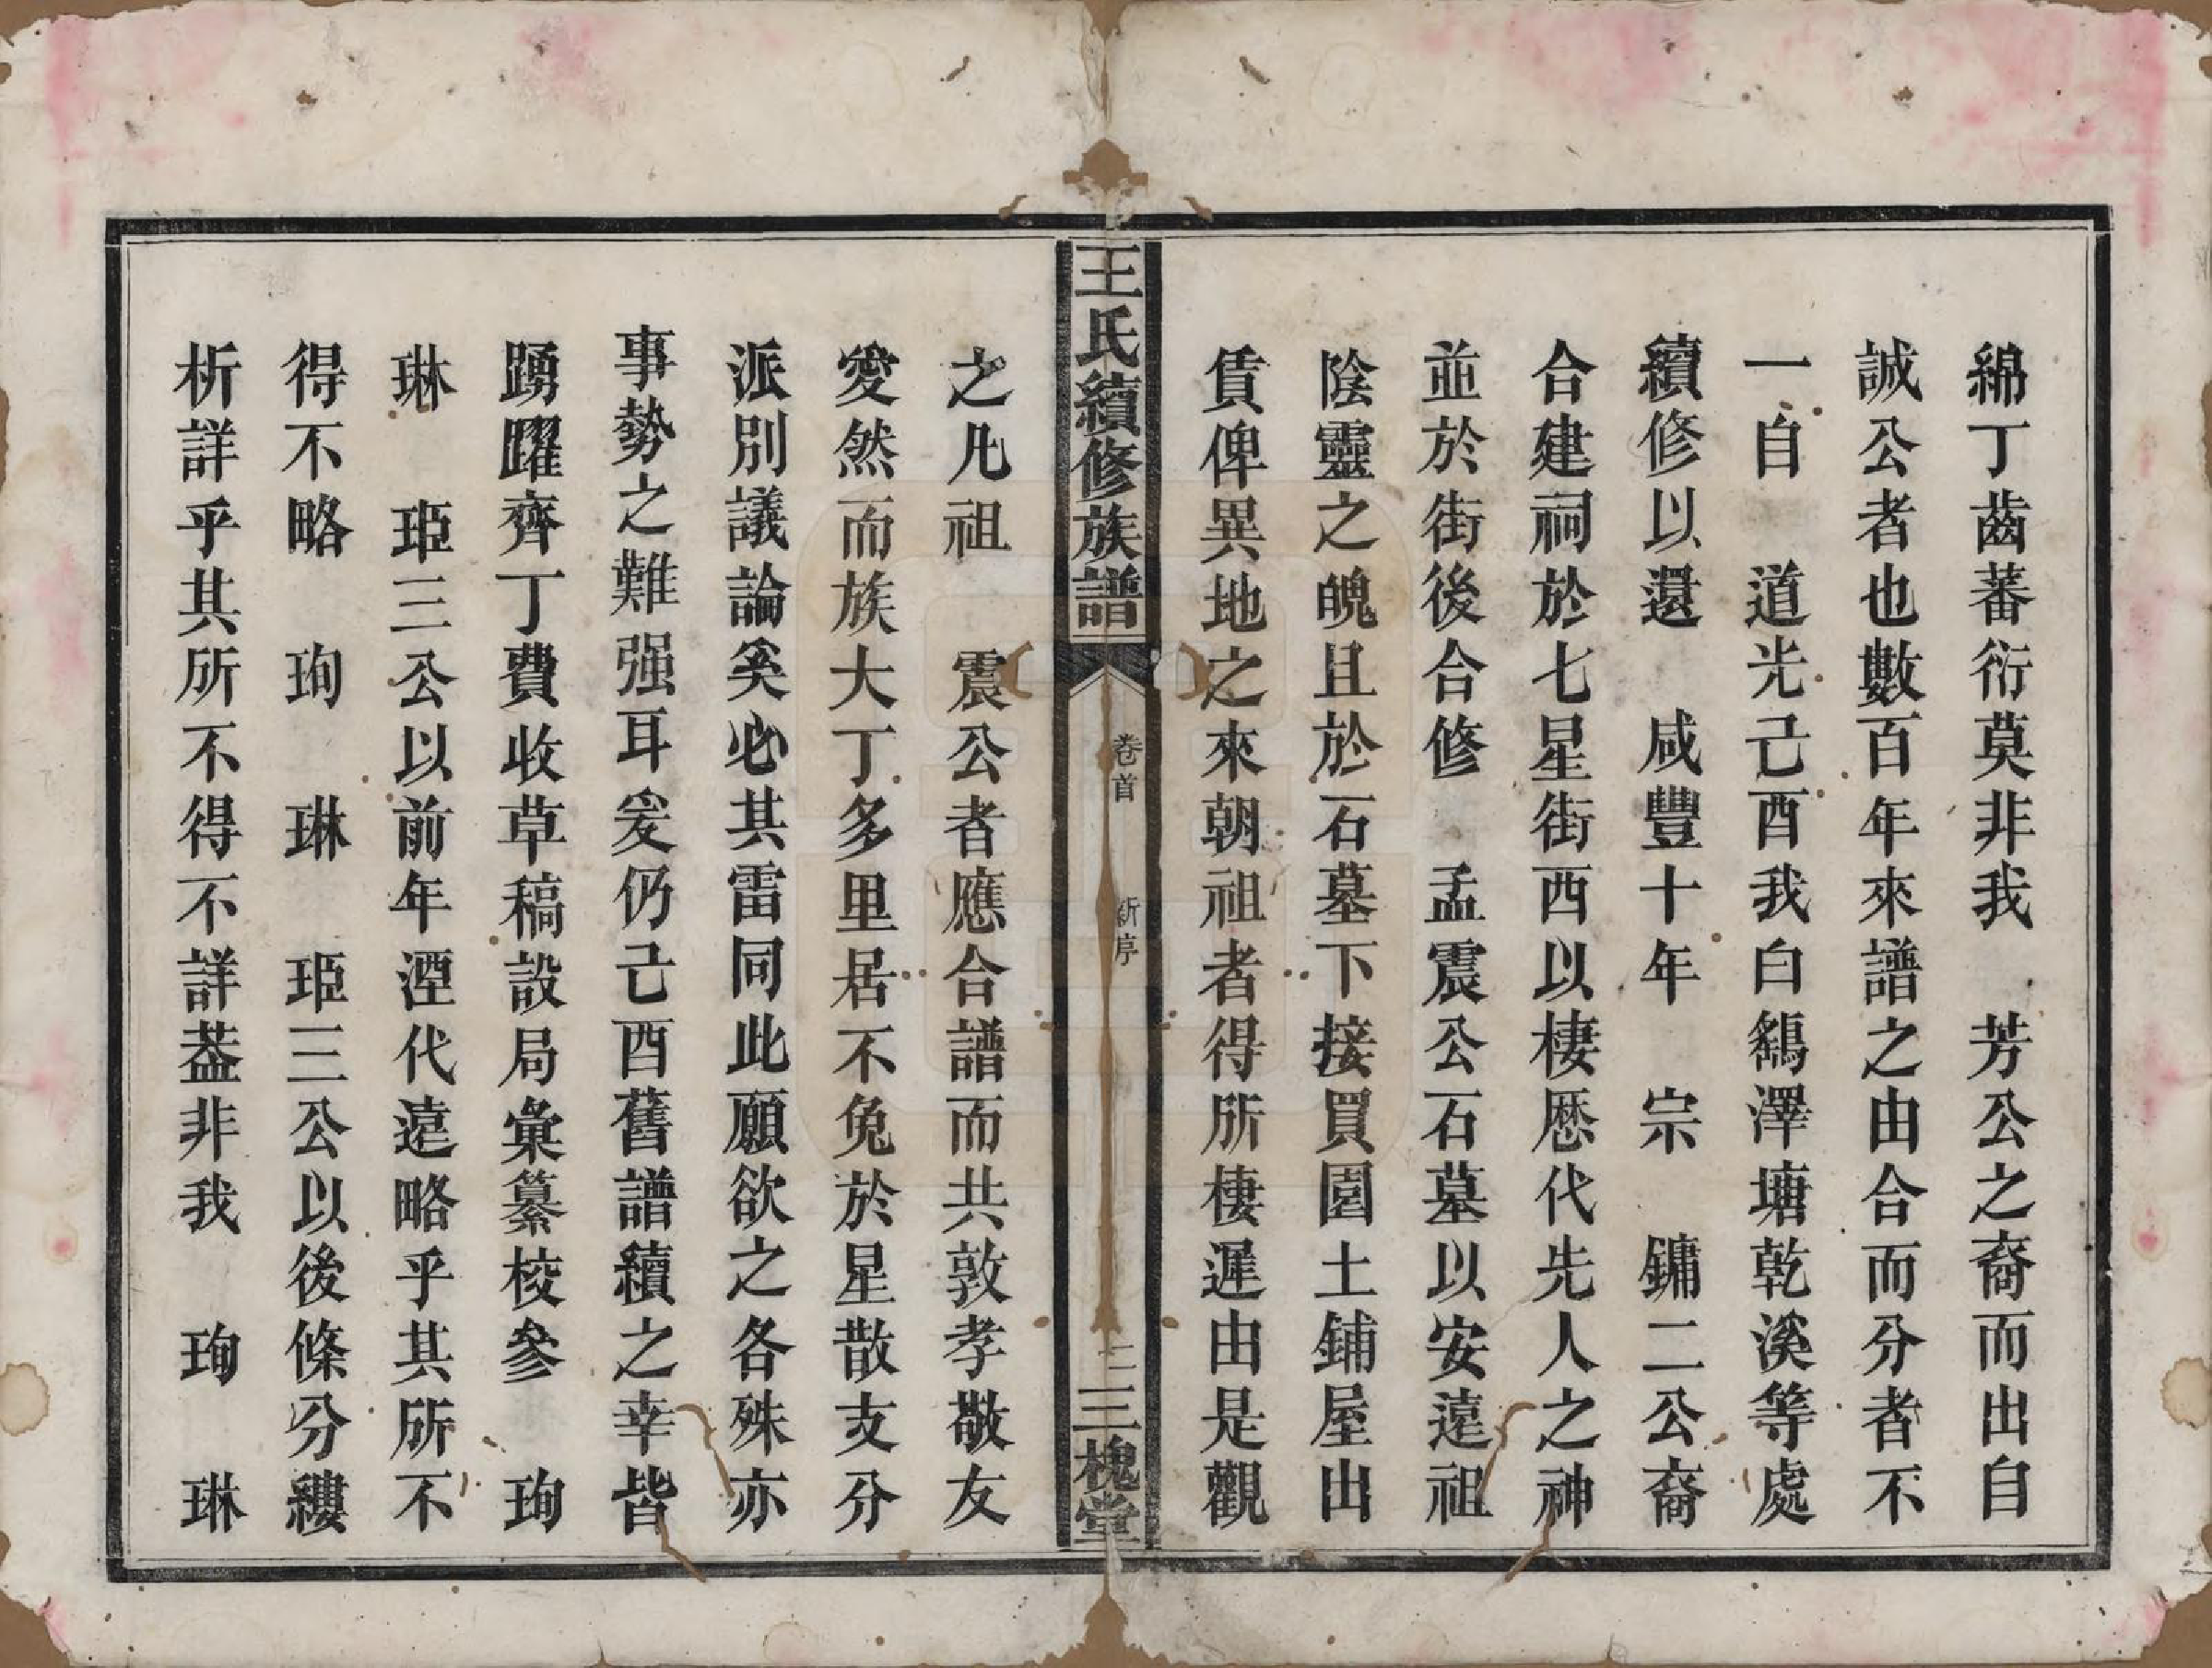 綿丁齒蕃衍莫非我　芳公之裔而出自
誠公者也數百年來譜之由合而分者不
一自　道光己酉我白鶴澤塘乾溪等處
續修以還　咸豐十年　宗　鏞二公裔
合建祠於七星街西以棲歷代先人之神
並於街後合修　孟震公石墓以安遠祖
陰靈之魄且於石墓下接買園土鋪屋出
賃俾異地之來朝祖者得所棲遲由是觀
王氏續修族譜
卷首　新序
二
三槐堂
之凡祖　震公者應合譜而共敦孝敬友
愛然而族大丁多里居不免於星散支分
派別議論奚必其雷同此願欲之各殊亦
事勢之難强耳爰仍己酉舊譜續之幸皆
踴躍齊丁費收草稿設局彙纂校參　珣
琳　珚三公以前年湮代遠略乎其所不
得不略　珣　琳　珚三公以後條分縷
析詳乎其所不得不詳葢非我　珣　琳